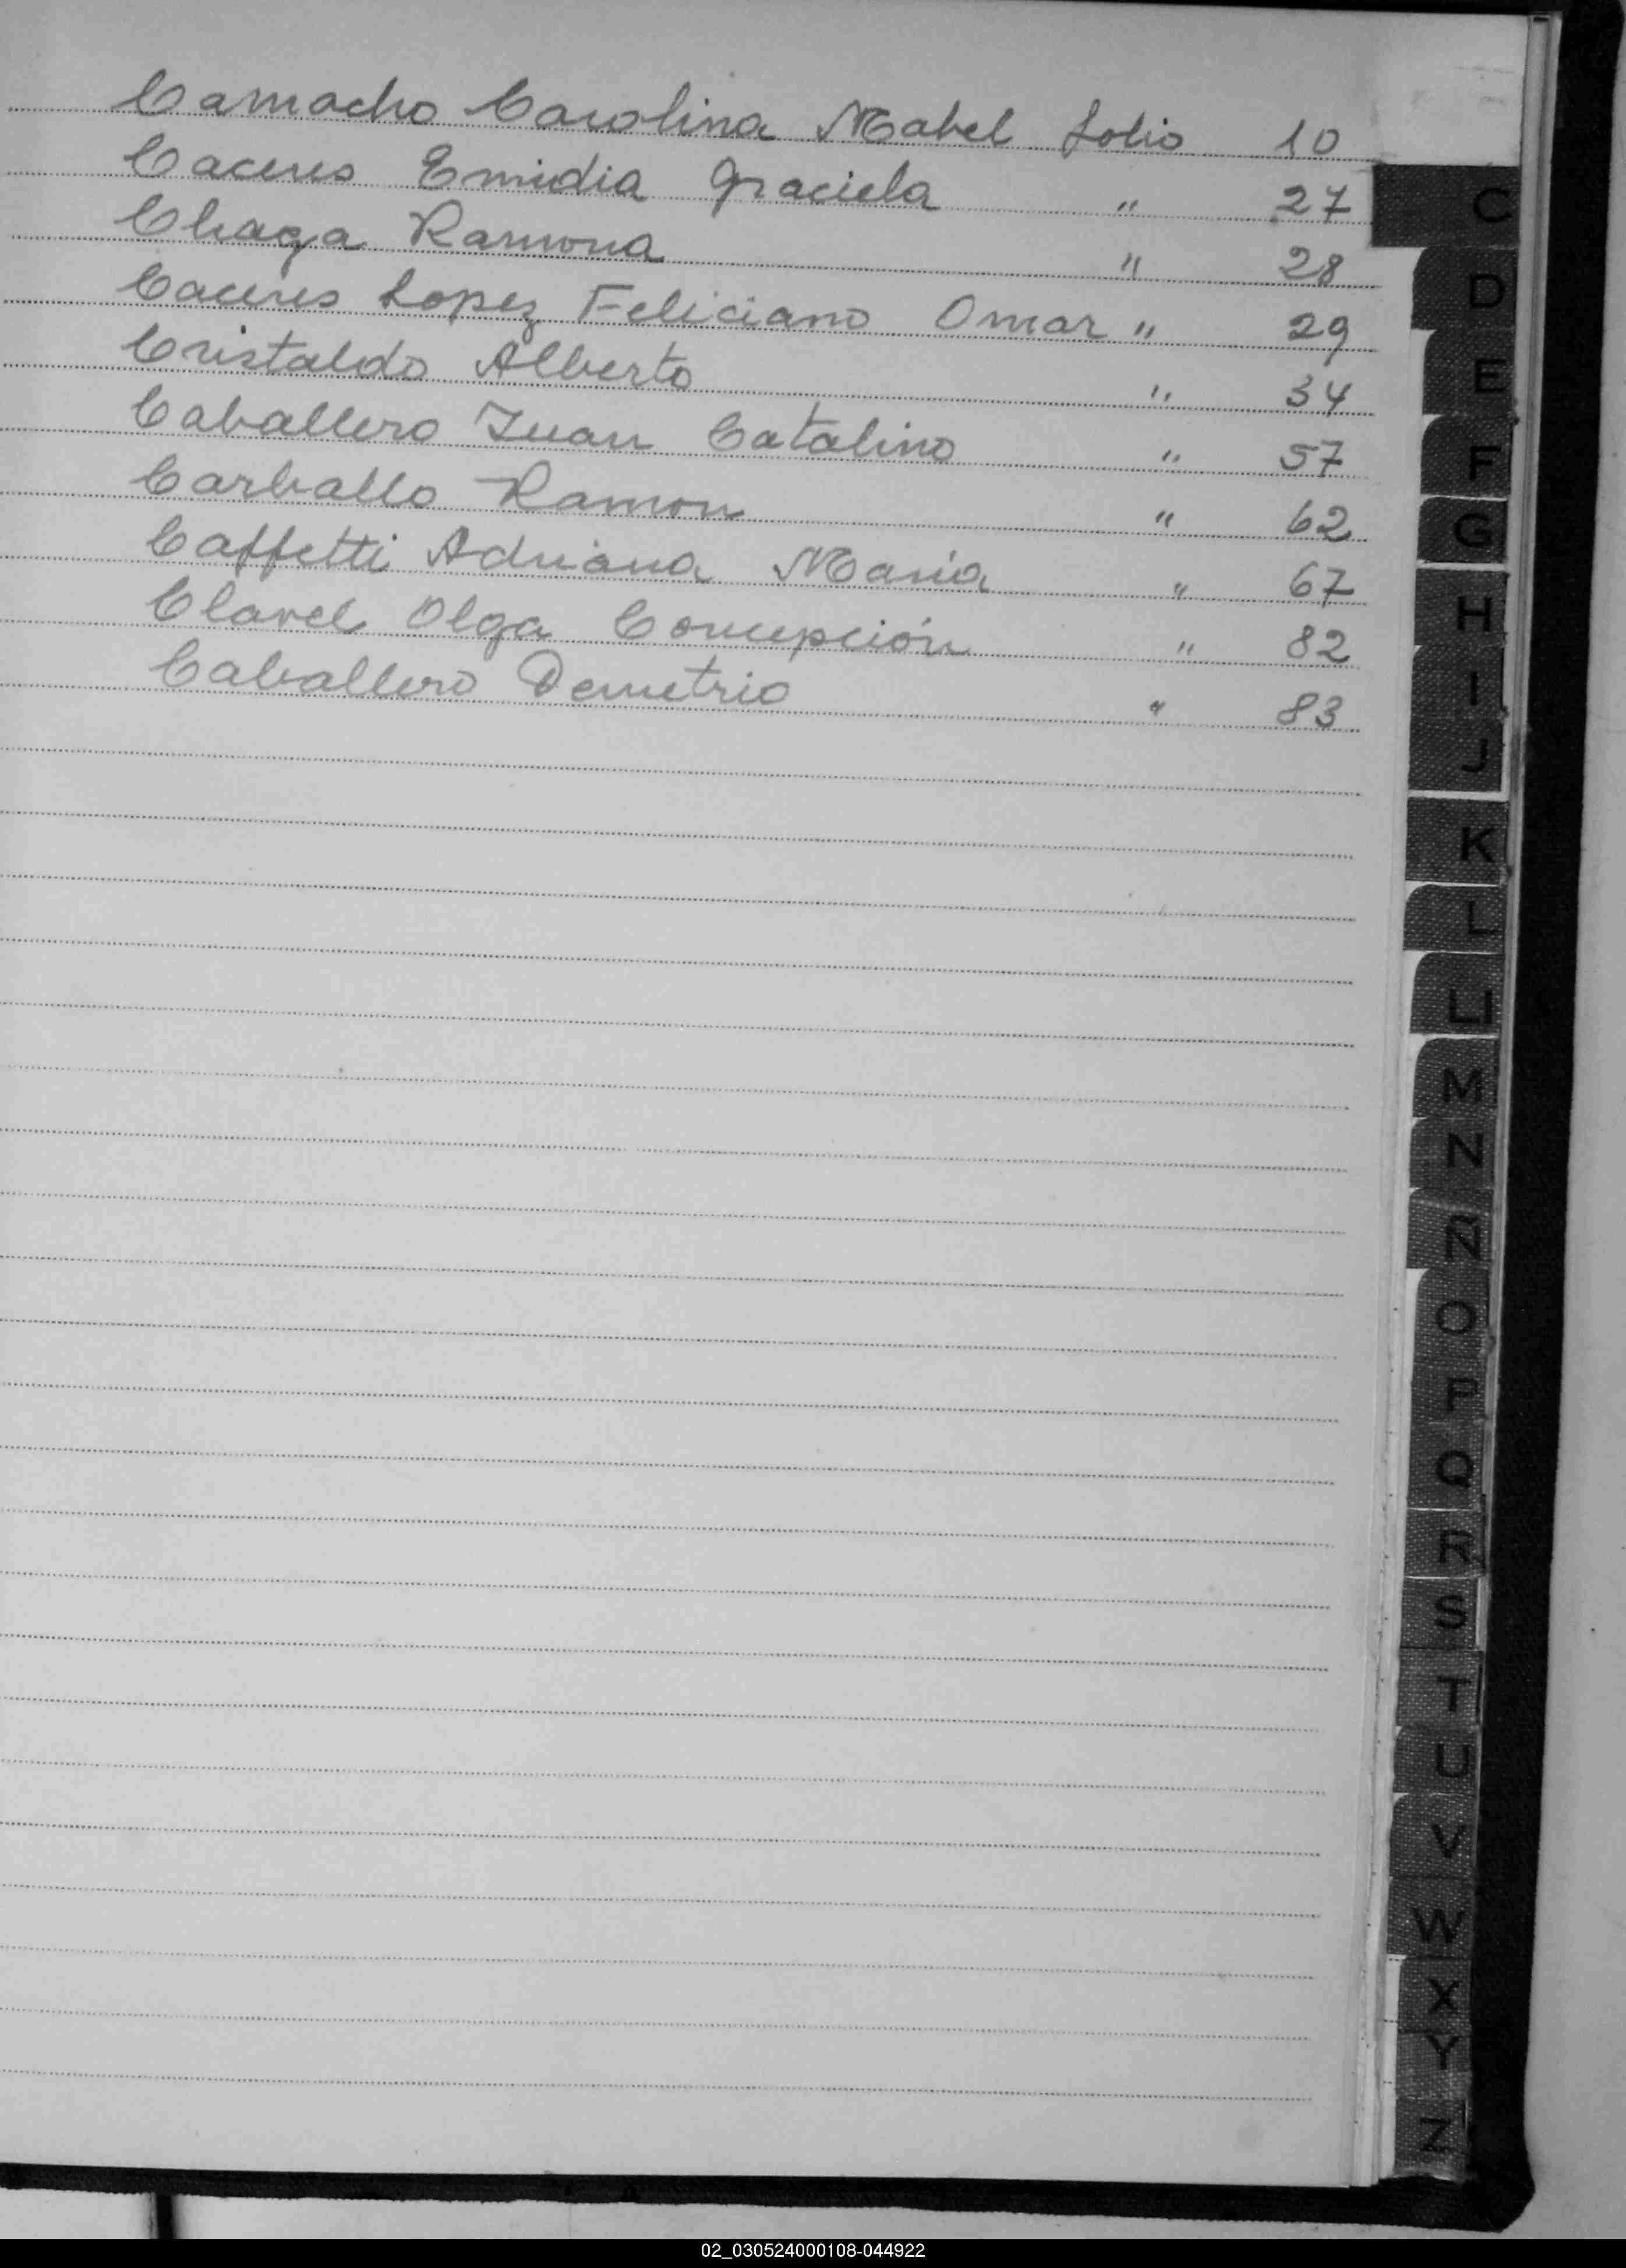 Camacho Carolina Mabel folio 10
Caceres Emidia Graciela " 27
Chaga Ramona " 28
Caceres Lopez Feliciano Omar " 29
Cristaldo Alberto " 34
Caballero Juan Catalino " 57
Carballo Ramon " 62
Caffetti Adriana Maria " 67
Clavel Olga Concepción " 82
Caballero Demetrio " 83
C
D
E
F
G
H
I
J
K
L
LL
M
N
Ñ
O
P
Q
R
S
T
U
V
W
X
Y
Z
02_030524000108-044922